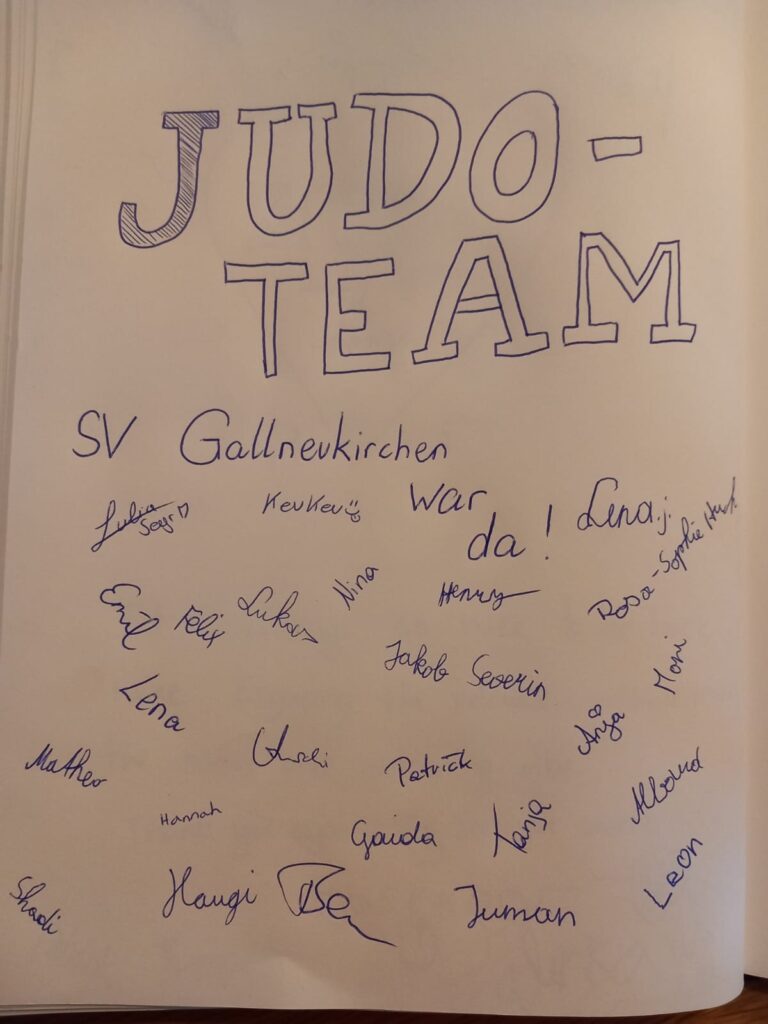 JUDO-
TEAM
SV Gallneukirchen
war
da!
Julia
Seyr
KevKev
Lena j.
Rosa-Sophie
Emil
Felix
Lukas
Nina
Henry
Jakob
Severin
Moni
Lena
Matheo
Patrick
Anja
Hannah
Gaida
Tanja
Shadi
Haugi
Ben
Juman
Leon